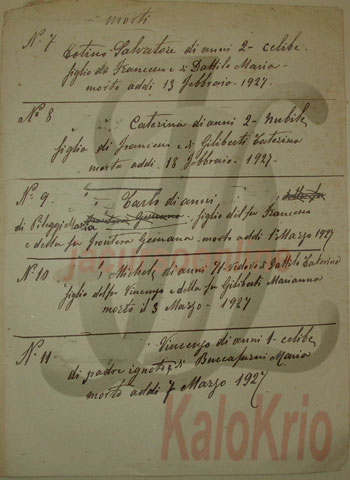 morti
N.° 7
Cotino Salvatore di anni 2 - celibe
figlio di Francesco e di Dattilo Maria -
morto addì 13 Febbraio. 1927.
N.° 8
" Caterina di anni 2 - nubile
figlia di Francesco e di Giliberti Caterina
morta addì 18 Febbraio. 1927.
N.° 9. " Carlo di anni
di Pileggi Maria figlio del fu Francesco
e della fu Frontera Gemana morto addì 1° Marzo 1927
N. 10 " Michele di anni 71 Vedovo di Dattilo Caterina
figlio del fu Vincenzo e della fu Giliberti Marianna
morto il 3 Marzo - 1927
N.° 11 " Vincenzo di anni 1 - celibe
di padre ignoto e di Maria
morto addì 7 Marzo 1927
KaloKrio